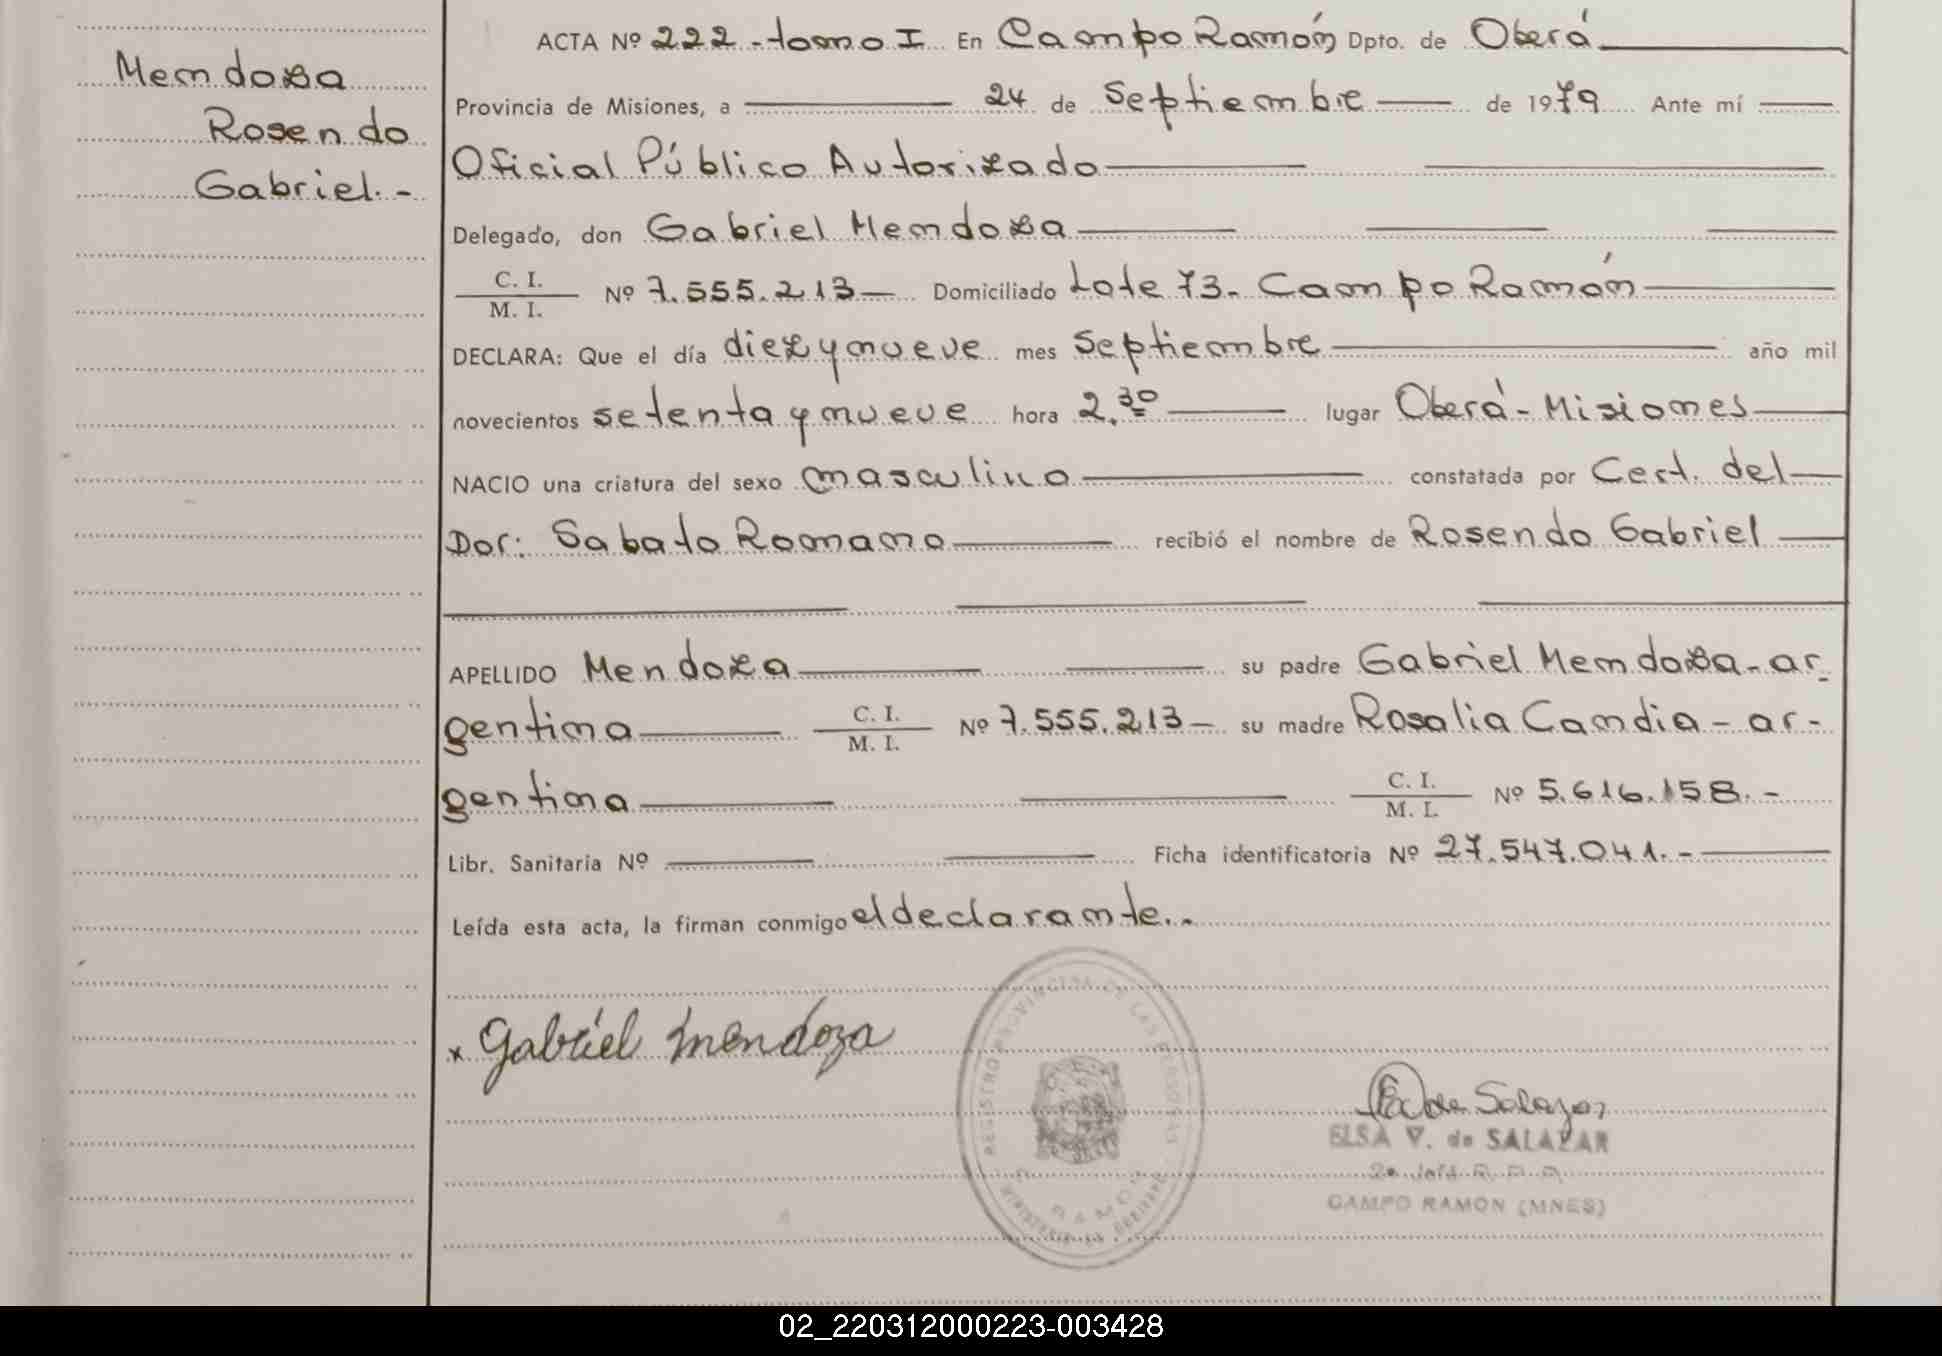 Mendoza
Rosendo
Gabriel.-
ACTA Nº 222 - tomo I En Campo Ramón Dpto. de Oberá
Provincia de Misiones, a 24 de Septiembre de 1979 Ante mí
Oficial Público Autorizado
Delegado, don Gabriel Mendoza
C. I.
M. I. Nº 7.555.213 Domiciliado Lote 73. Campo Ramón
DECLARA: Que el día diez y nueve mes Septiembre año mil
novecientos setenta y nueve hora 2.30 lugar Oberá - Misiones
NACIO una criatura del sexo masculino constatada por Cert. del
Dor: Sabato Romano recibió el nombre de Rosendo Gabriel
APELLIDO Mendoza su padre Gabriel Mendoza - ar-
gentina C. I.
M. I. Nº 7.555.213 - su madre Rosalia Candia - ar-
gentina C. I.
M. I. Nº 5.616.158.-
Libr. Sanitaria Nº Ficha identificatoria Nº 27.547.041.-
Leída esta acta, la firman conmigo el declarante..
x Gabriel Mendoza
REGISTRO PROVINCIAL DE LAS PERSONAS
de Salazar
ELSA V. de SALAZAR
CAMPO RAMON (MNES)
02_220312000223-003428